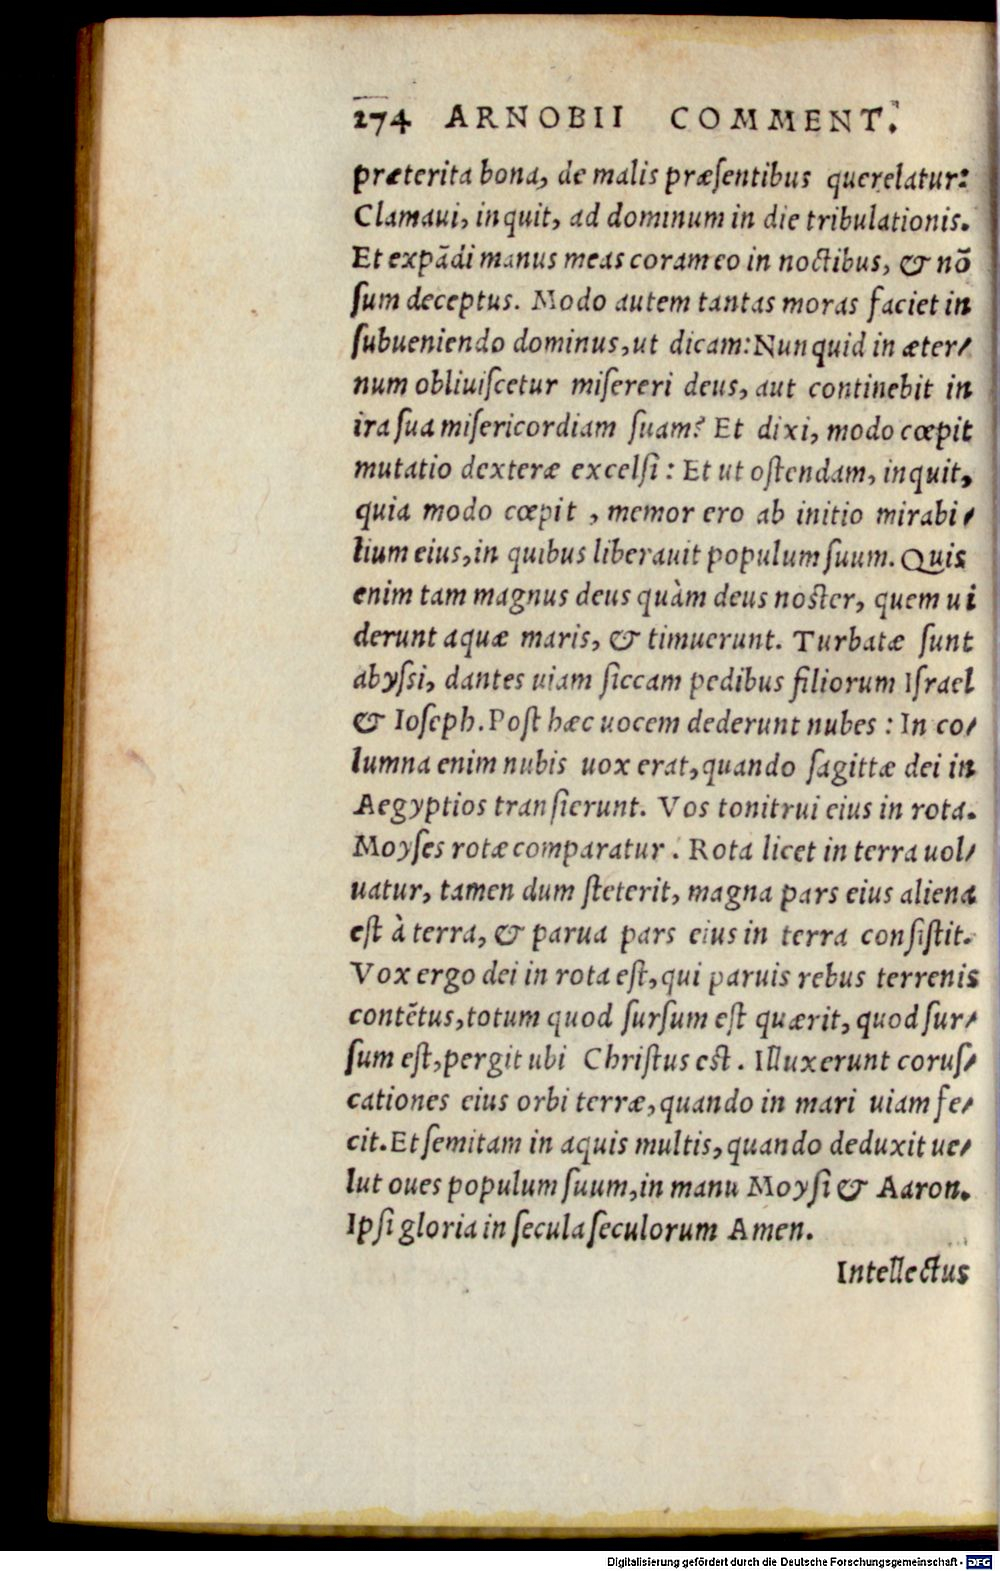 274 ARNOBII COMMENT.
præterita bona, de malis præſentibus querelatur:
Clamaui, inquit, ad dominum in die tribulationis.
Et expādi manus meas coram eo in noctibus, & nō
ſum deceptus. Modo autem tantas moras faciet in
ſubueniendo dominus, ut dicam: Nunquid in æter⸗
num obliuiſcetur miſereri deus, aut continebit in
ira ſua miſericordiam ſuam? Et dixi, modo cœpit
mutatio dexteræ excelſi: Et ut oſtendam, inquit,
quia modo cœpit, memor ero ab initio mirabi⸗
lium eius, in quibus liberauit populum ſuum. Quis
enim tam magnus deus quàm deus noſter, quem ui
derunt aquæ maris, & timuerunt. Turbatæ ſunt
abyſsi, dantes uiam ſiccam pedibus filiorum Iſrael
& Ioſeph. Poſt hæc uocem dederunt nubes: In co⸗
lumna enim nubis uox erat, quando ſagittæ dei in
Aegyptios tranſierunt. Vos tonitrui eius in rota.
Moyſes rotæ comparatur. Rota licet in terra uol⸗
uatur, tamen dum ſteterit, magna pars eius aliena
eſt à terra, & parua pars eius in terra conſiſtit.
Vox ergo dei in rota eſt, qui paruis rebus terrenis
contētus, totum quod ſurſum eſt quærit, quod ſur⸗
ſum eſt, pergit ubi Chriſtus eſt. Illuxerunt coruſ⸗
cationes eius orbi terræ, quando in mari uiam fe⸗
cit. Et ſemitam in aquis multis, quando deduxit ue⸗
lut oues populum ſuum, in manu Moyſi & Aaron.
Ipſi gloria in ſecula ſeculorum Amen.
Intellectus
Digitalisierung gefördert durch die Deutsche Forschungsgemeinschaft - DFG